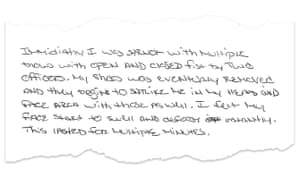 Immidiatly I was struck with multiple
blows with open and closed fist by two
officers. My shoes was eventually removed
and they begine to strike me in my head and
face area with those as well. I felt my
face start to swell and instantly.
This lasted for multiple minutes.